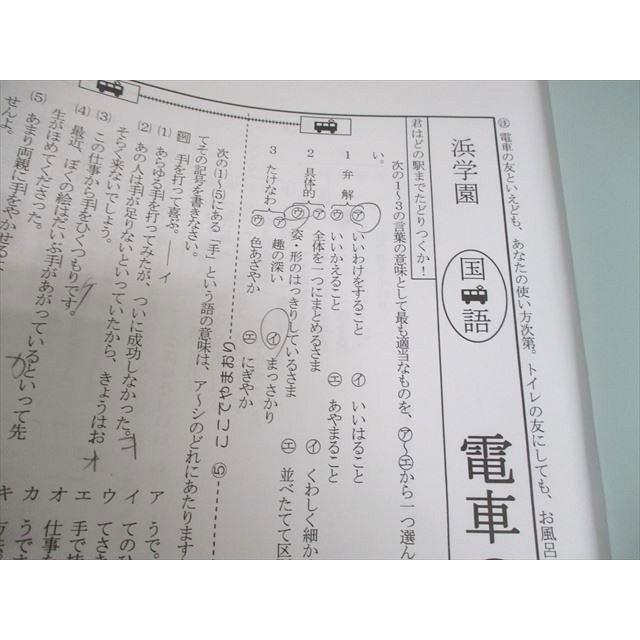 注 電車の友といえども、あなたの使い方次第。トイレの友にしても、お風呂
浜学園 国語 電車
君はどの駅までたどりつくか!
次の1〜3の言葉の意味として最も適当なものを、㋐〜㋓から一つ選ん
い。
1 弁解
㋐ いいわけをすること ㋑ いいはること
㋒ いいかえること ㋓ あやまること
2 具体的
㋐ 全体を一つにまとめるさま ㋑ くわしく細か
㋒ 姿・形のはっきりしているさま ㋓ 並べたてて区
3 たけなわ
㋐ 趣の深い ㋑ まっさかり
㋒ 色あざやか ㋓ にぎやか
ここでやまおり ⑤
次の(1)〜(5)にある「手」という語の意味は、ア〜シのどれにあたります
てその記号を書きなさい。
例 手を打って喜ぶ。――イ
(1) あらゆる手を打ってみたが、ついに成功しなかった。
(2) あの人は手が足りないといっていたから、きょうはお
そらく来ないでしょう。
(3) この仕事から手をひくつもりです。
(4) 最近、ぼくの絵はだいぶ手があがっているといって先
生がほめてくださった。
(5) あまり両親に手をやかせるよ
せんよ。
ア うで。
イ てのひ
ウ てさき
エ 手で持
オ 仕事を
カ うでま
キ